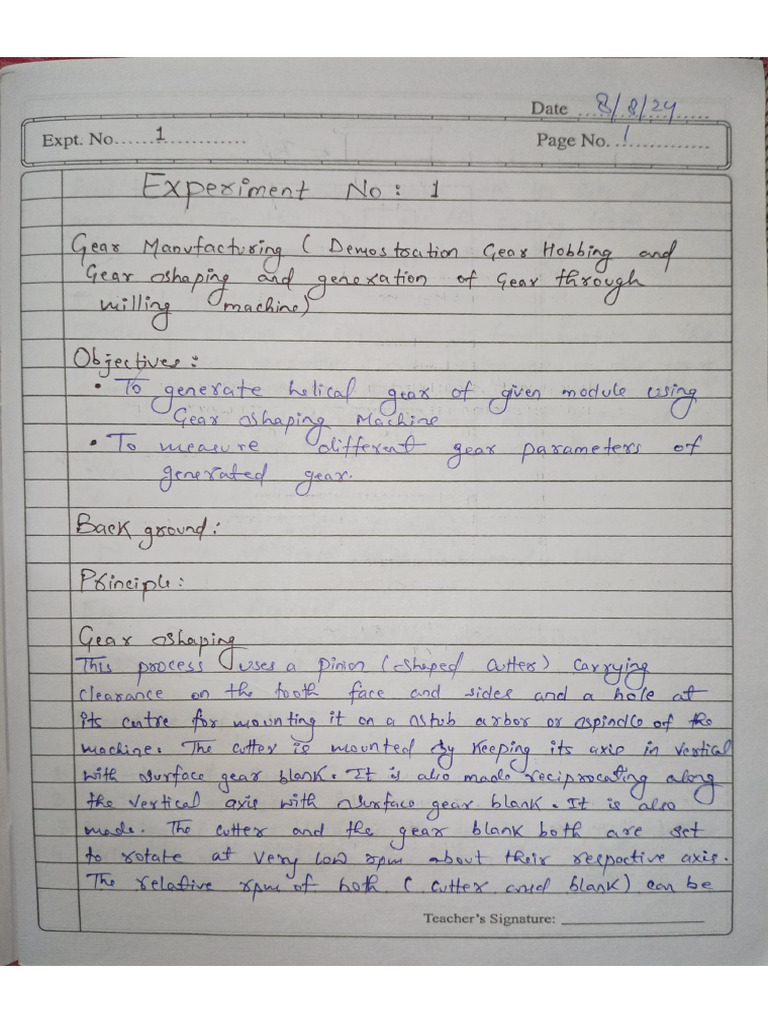 Date 8/8/24
Expt. No. 1
Page No. 1
Experiment No: 1
Gear Manufacturing ( Demostration Gear Hobbing and
Gear shaping and generation of Gear through
milling machine)
Objectives:
• To generate helical gear of given module using
Gear shaping Machine
• To measure different gear parameters of
generated gear.
Back ground:
Principle:
Gear shaping
This process uses a pinion (shaped cutter) carrying
clearance on the tooth face and sides and a hole at
its centre for mounting it on a stub arbor or spindle of the
machine. The cutter is mounted by keeping its axis in vertical
with surface gear blank. It is also made reciprocating along
the vertical axis with surface gear blank. It is also
made. The cutter and the gear blank both are set
to rotate at very low rpm about their respective axis.
The relative rpm of both ( cutter and blank) can be
Teacher's Signature: